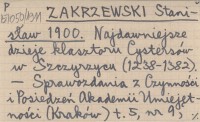 P
ZAKRZEWSKI Stani-
sław 1900. Najdawniejsze
dzieje klasztoru Cystersów
w Szczyrzycu (1238-1382)
– Sprawozdania z Czynności
i Posiedzeń Akademii Umiejęt-
ności (Kraków) t. 5, nr 9